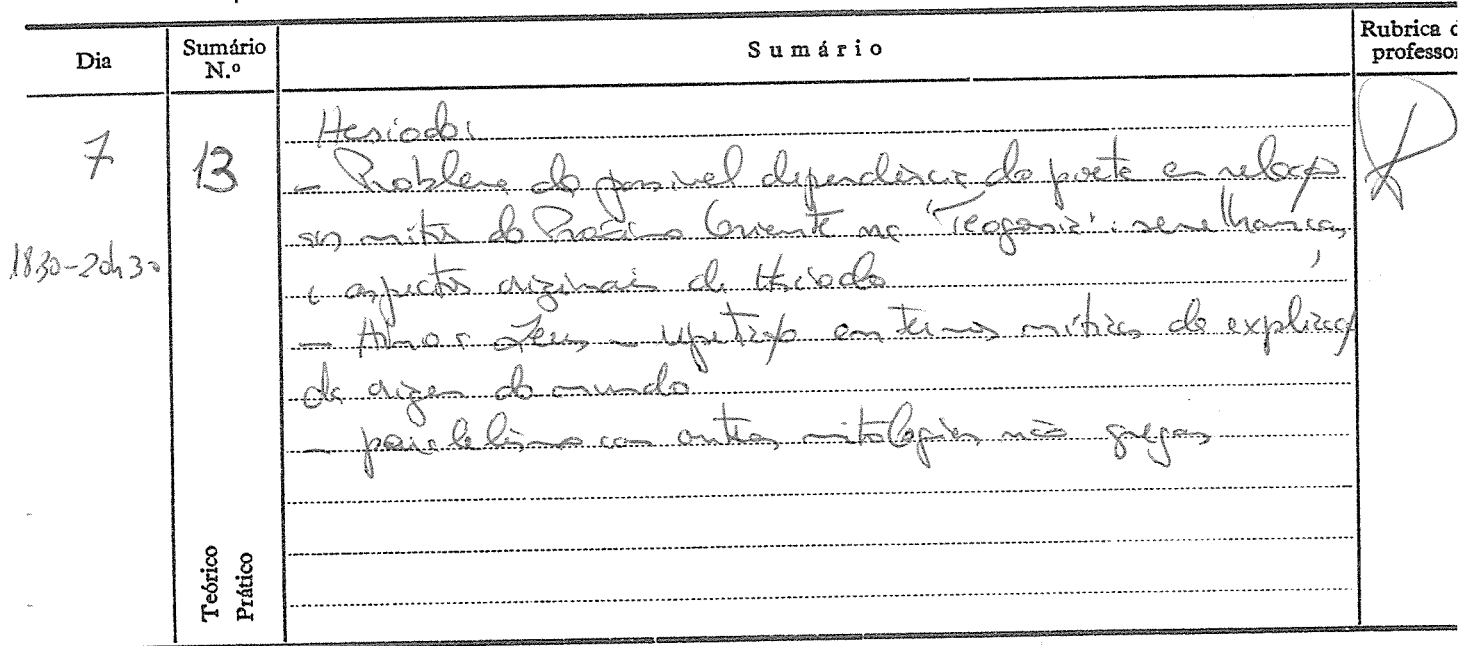 Dia
Sumário N.º
Sumário
Rubrica d
professor
7
13
18.30-20h30
Hesíodo:
- Problema da possível dependência do poeta em relação
aos mitos do Próximo Oriente na "Teogonia": semelhanças,
e aspectos originais de Hesíodo
- em termos míticos da explicação
da origem do mundo
- paralelismo com outras mitologias não gregas
Teórico
Prático